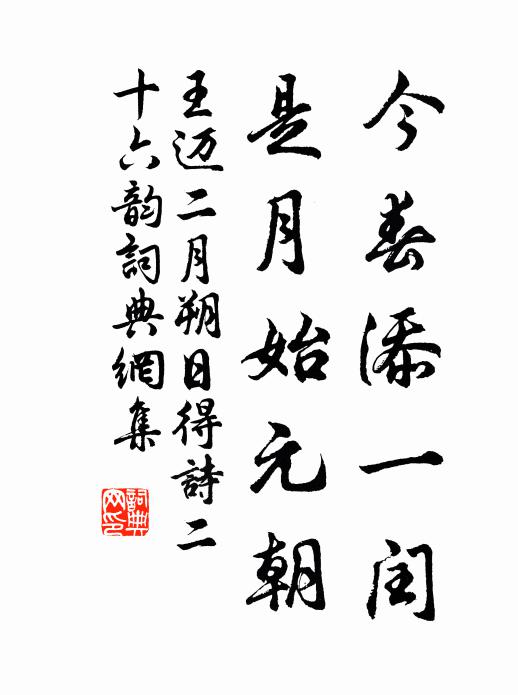 今春添一闰
是月始元朝
王迈二月朔日得詩二
十六韵詞典網集
詞典网印